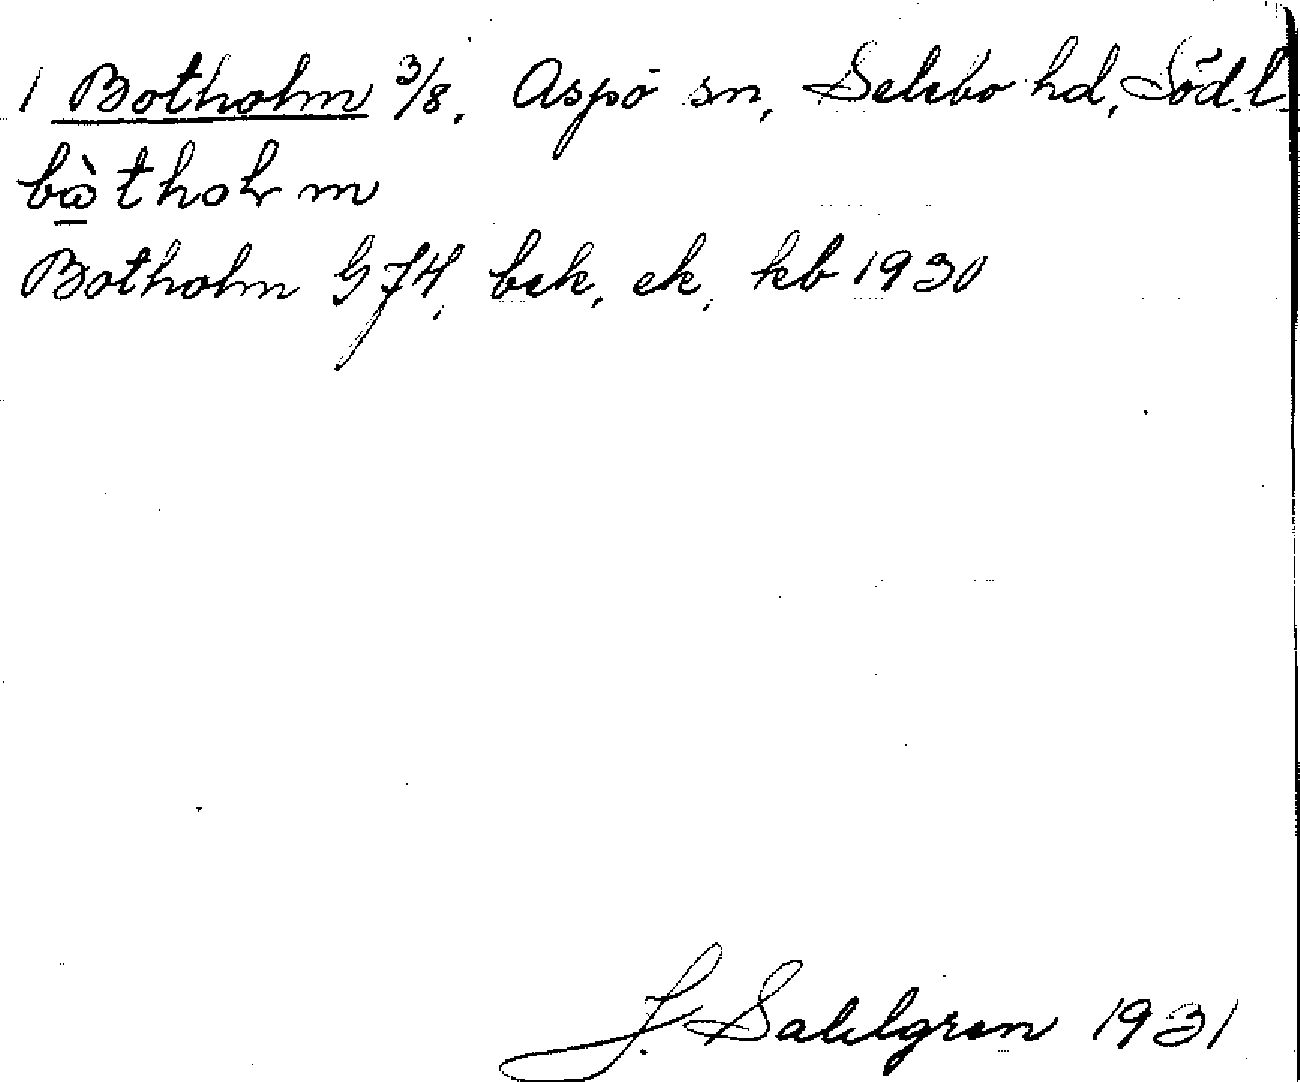 1 Botholm 3/8, Aspö sn, Selebo hd, Södl.
bὼtholm
Botholm G74, bek, ek, kb 1930
J. Sahlgren 1931